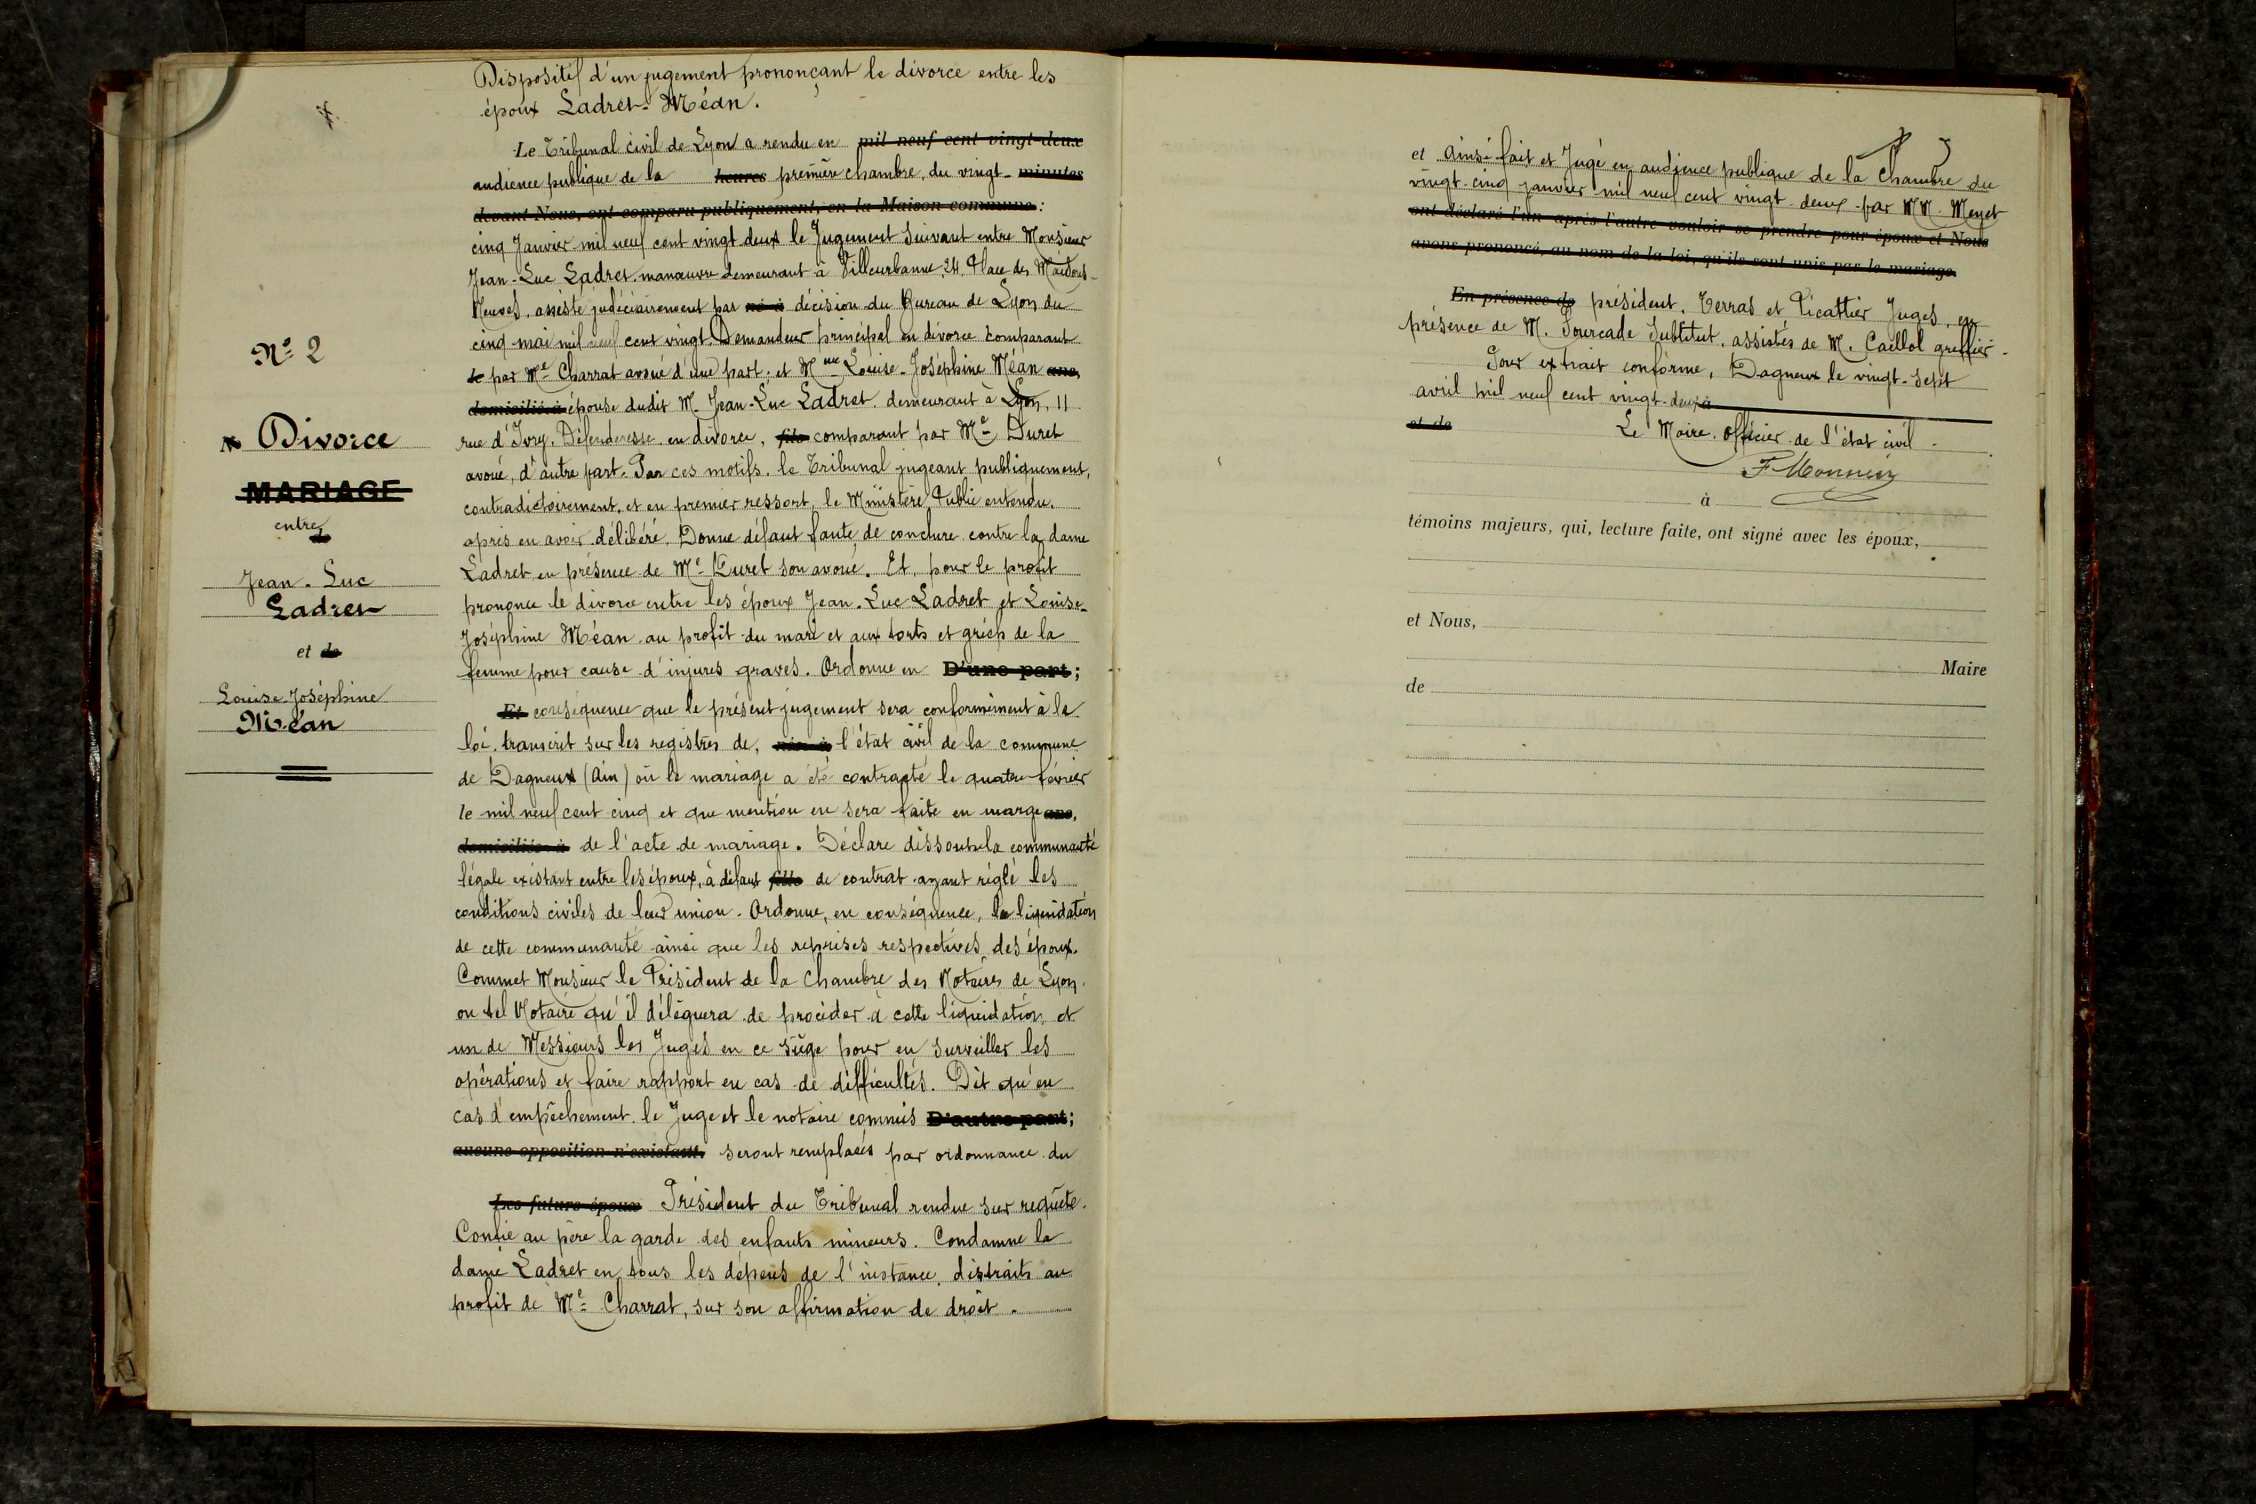 Dispositif d'un jugement prononçant le divorce entre les
époux Ladret-Méan.
Le Tribunal civil de Lyon a rendu en mil neuf cent vingt-deux
audience publique de la heures première chambre, du vingt- minutes
devant Nous, ont comparu publiquement, en la Maison commune :
cinq Janvier mil neuf cent vingt deux le Jugement suivant entre Monsieur
Jean-Luc Ladret, manœuvre demeurant à Villeurbanne, 24, Place des Maisons-
Neuves, assisté judiciairement par né à décision du Bureau de Lyon du
cinq mai mil neuf cent vingt. Demandeur principal en divorce comparant
le par Me Charrat avoué d'une part. et Mme Louise-Joséphine Méan ans,
domicilié à épouse dudit M. Jean-Luc Ladret, demeurant à Lyon, 11
rue d'Ivry. Défenderesse en divorce, fils comparant par Me Duret
avoué, d'autre part. Par ces motifs, le Tribunal jugeant publiquement,
contradictoirement, et en premier ressort, le Ministère Public entendu,
après en avoir délibéré. Donne défaut faute de conclure contre la dame
Ladret en présence de Me Duret son avoué. Et, pour le profit
prononce le divorce entre les époux Jean-Luc Ladret et Louise-
Joséphine Méan au profit du mari et aux torts et griefs de la
femme pour cause d'injures graves. Ordonne en D'une part ;
Et conséquence que le présent jugement sera conformément à la
loi, transcrit sur les registres de, née à l'état civil de la commune
de Dagneux (Ain) où le mariage a été contracté le quatre février
le mil neuf cent cinq et que mention en sera faite en marge ans,
domiciliée à de l'acte de mariage. Déclare dissoute la communauté
légale existant entre les époux, à défaut fille de contrat ayant réglé les
conditions civiles de leur union. Ordonne, en conséquence, la liquidation
de cette communauté ainsi que les reprises respectives des époux.
Commet Monsieur le Président de la Chambre des Notaires de Lyon.
ou tel Notaire qu'il déléguera de procéder à cette liquidation, et
un de Messieurs les Juges en ce siège pour en surveiller les
opérations et faire rapport en cas de difficultés. Dit qu'en
cas d'empêchement le Juge et le notaire commis D'autre part ;
aucune opposition n'existant. seront remplacés par ordonnance du
Les futurs époux Président du Tribunal rendue sur requête.
Confie au père la garde des enfants mineurs. Condamne la
dame Ladret en tous les dépens de l'instance, distraits au
profit de Me Charrat, sur son affirmation de droit.
No 2
Divorce
MARIAGE
entre
de
Jean-Luc
Ladret
et de
Louise Joséphine
Méan
et ainsi fait et Jugé en audience publique de la Chambre du
vingt-cinq janvier mil neuf cent vingt-deux par MM. Meyet
ont déclaré l'un après l'autre vouloir se prendre pour époux et Nous
avons prononcé, au nom de la loi, qu'ils sont unis par le mariage.
En présence de président, Terras et Picattier Juges, en
présence de M. Fourcade Substitut, assistés de M. Caillol greffier.
Pour extrait conforme, Dagneux le vingt-sept
avril mil neuf cent vingt-deux à
et de Le Maire, officier de l'état civil.
F. Monnier
à
témoins majeurs, qui, lecture faite, ont signé avec les époux,
et Nous,
Maire
de